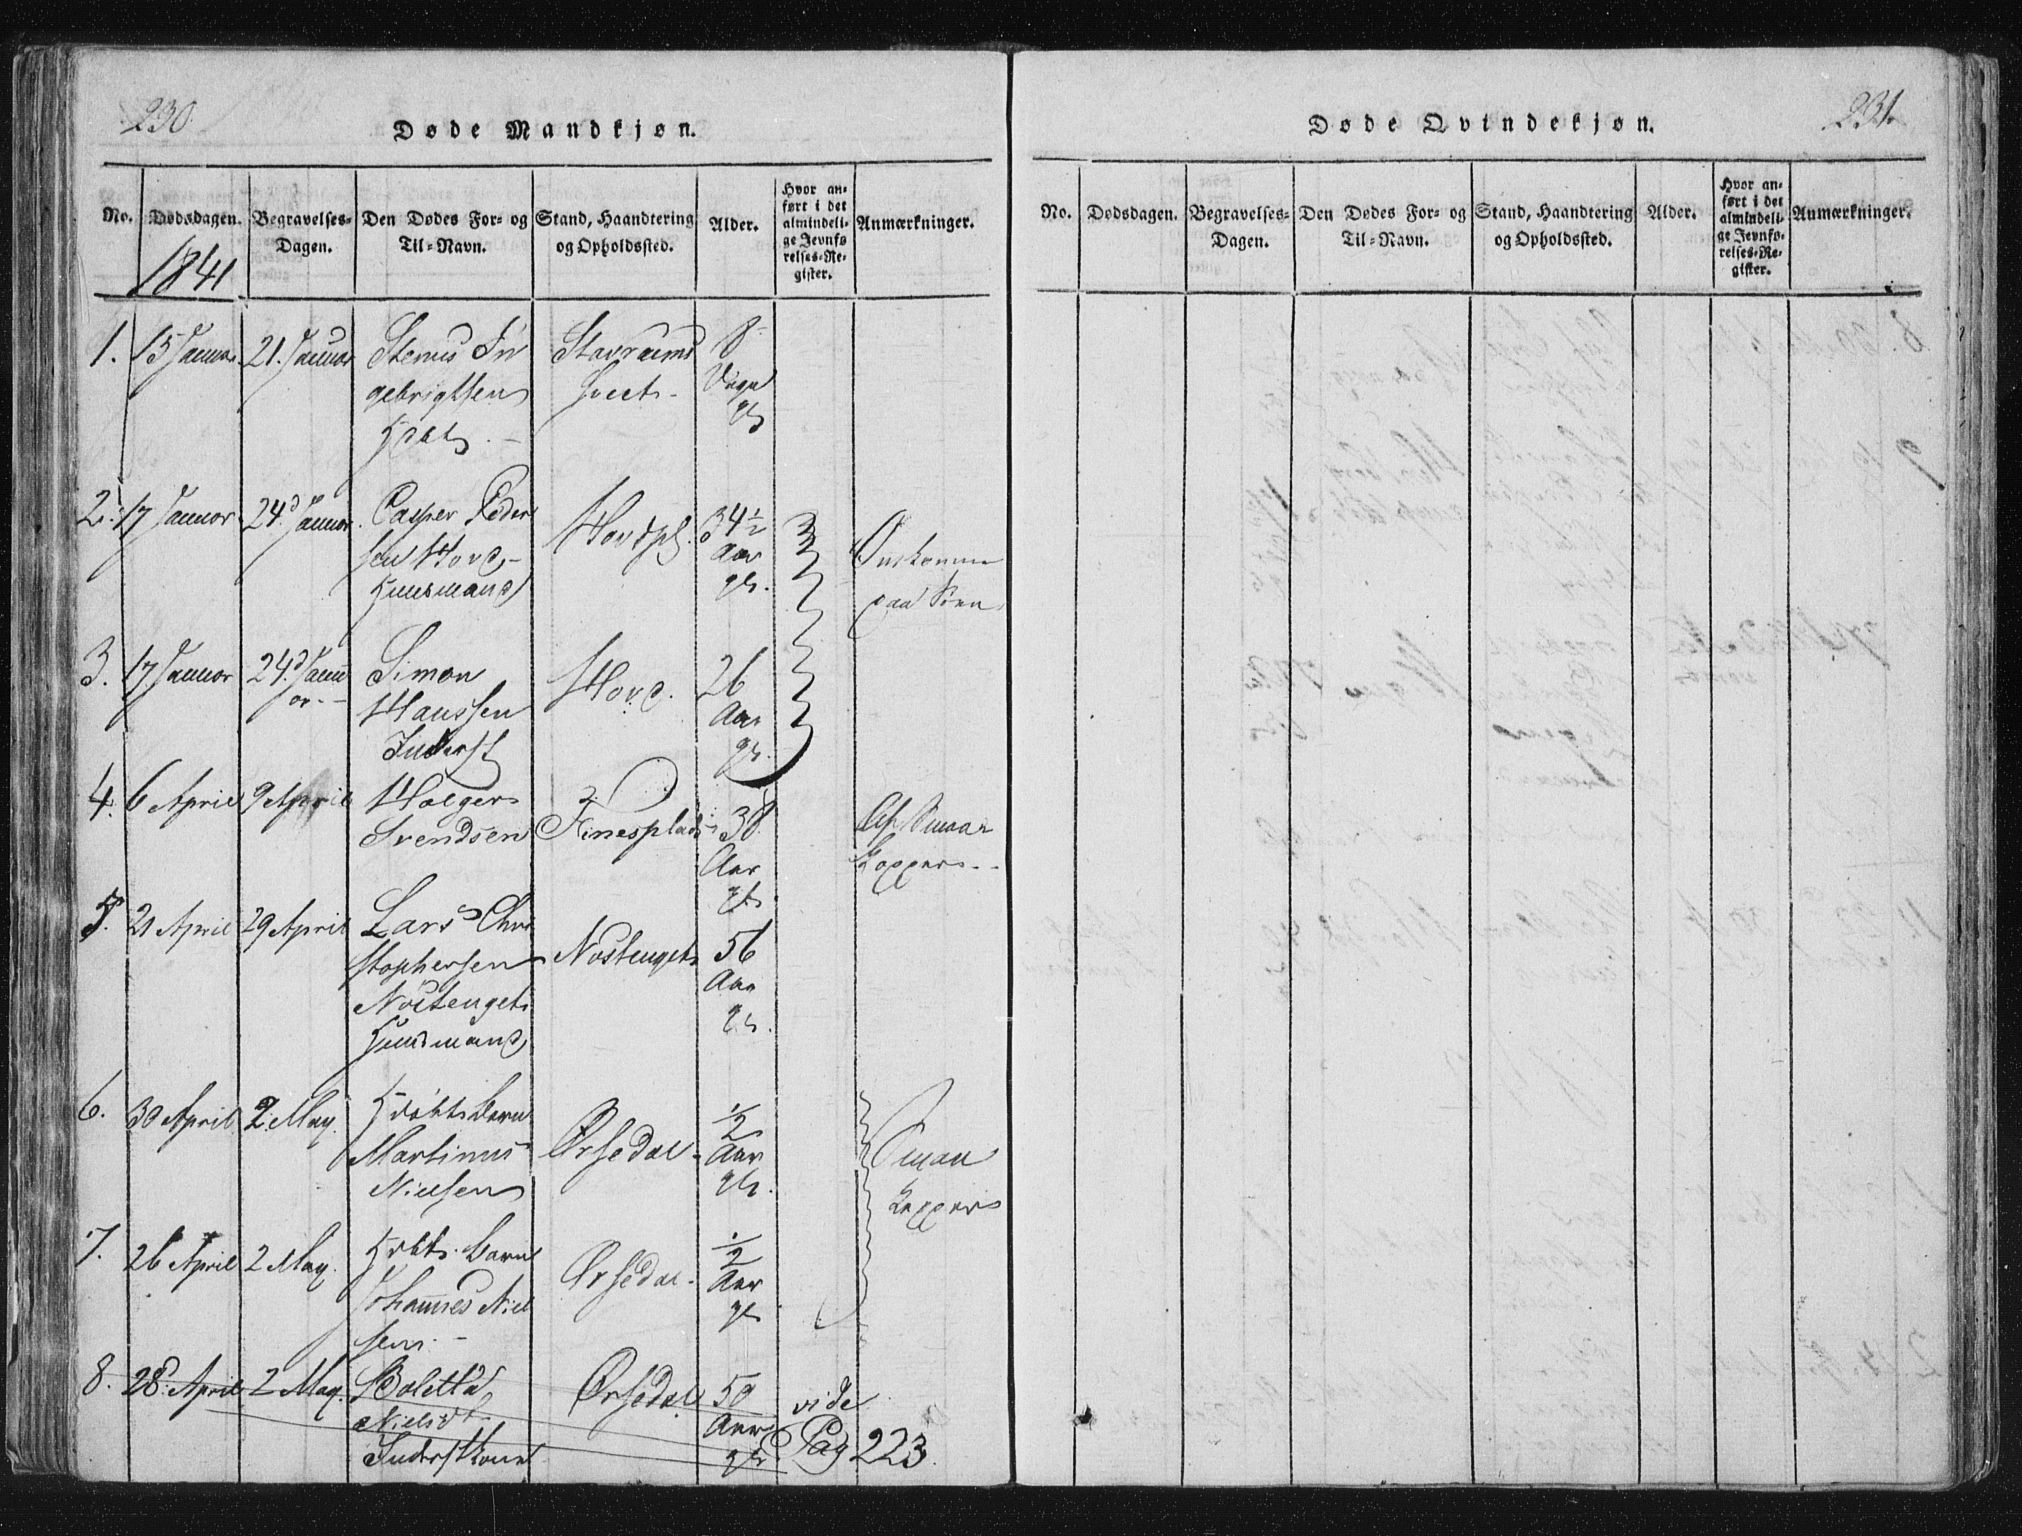 230
Døde Mandkjøn.
No.
Dødsdagen.
Begravelses-
Dagen.
Den Dødes For- og
Til-Navn.
Stand, Haandtering
og Opholdssted.
Alder.
Hvor an-
ført i det
almindeli-
ge Jevnfø
relses-Re-
gister.
Anmærkninger.
1841
1. 15 Januar 21. Januar Stenus In
gebrigtsen
8
Uger
gl
2. 17 Januar 24d Januar Casper Peder
sen Hovd
Huusmand
Hovdpl. 34½
Aar
gl.
Omkommen
paa Søen
3. 17 Januar 24d Janu
ar
Simon
Hanssen
Inderst
Hovd. 26
Aar
gl.
4. 6 April 9 April Holger
Svendsen
Finesplads 38
Aar
gl.
Af Smaa
Kopper
5. 21 April 29 April Lars Chri
stophersen
Nøstenget
Huusmand
Nøstenget 56
Aar
gl.
6. 30 April 2 May. Barn
Martinus
Nielsen
Ørsedal ½
Aar
gl.
Smaa
Kopper
7. 26 April 2 May. Barn
Johannes Niel
sen.
Ørsedal ½
Aar
gl
8. 28. April 2 May. Boletta
Nielsd.
Inderstkone
Ørsedal 50
Aar
gl.
vide
Pag 223.
231.
Døde Qvindekjøn.
No.
Dødsdagen.
Begravelses-
Dagen.
Den Dødes For- og
Til-Navn.
Stand, Haandtering
og Opholdssted.
Alder.
Hvor an-
ført i det
almindeli-
ge Jevnfø-
relses-Re-
gister.
Anmærkninger.